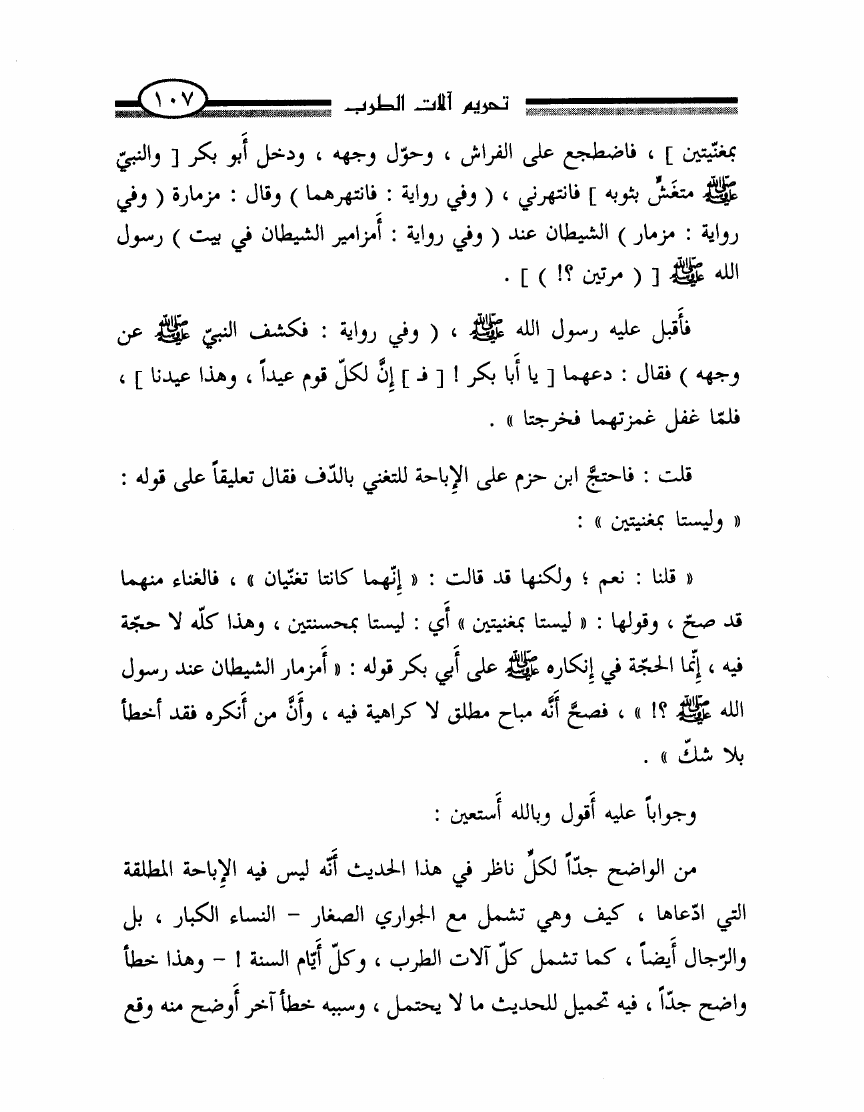 تحريم آلات الطرب ١٠٧
بمغنّيتين ] ، فاضطجع على الفراش ، وحوّل وجهه ، ودخل أَبو بكر [ والنبيّ
ﷺ متغَشٍّ بثوبه ] فانتهرني ، ( وفي رواية : فانتهرهما ) وقال : مزمارة ( وفي
رواية : مزمار ) الشيطان عند ( وفي رواية : أَمزامير الشيطان في بيت ) رسول
الله ﷺ [ ( مرتين ؟! ) ] .
فأَقبل عليه رسول الله ﷺ ، ( وفي رواية : فكشف النبيّ ﷺ عن
وجهه ) فقال : دعهما [ يا أَبا بكر ! [ فـ ] إِنَّ لكلّ قوم عيداً ، وهذا عيدنا ] ،
فلمّا غفل غمزتهما فخرجتا » .
قلت : فاحتجَّ ابن حزم على الإِباحة للتغني بالدّف فقال تعليقاً على قوله :
« وليستا بمغنيتين » :
« قلنا : نعم ؛ ولكنها قد قالت : « إِنّهما كانتا تغنّيان » ، فالغناء منهما
قد صحّ ، وقولها : « ليستا بمغنيتين » أَي : ليستا بمحسنتين ، وهذا كلّه لا حجّة
فيه ، إِنّما الحجّة في إِنكاره ﷺ على أَبي بكر قوله : « أَمزمار الشيطان عند رسول
الله ﷺ ؟! » ، فصحَّ أَنَّه مباح مطلق لا كراهية فيه ، وأَنَّ من أَنكره فقد أخطأ
بلا شكّ » .
وجواباً عليه أَقول وبالله أَستعين :
من الواضح جدّاً لكلِّ ناظر في هذا الحديث أَنَّه ليس فيه الإِباحة المطلقة
التي ادّعاها ، كيف وهي تشمل مع الجواري الصغار - النساء الكبار ، بل
والرّجال أَيضاً ، كما تشمل كلّ آلات الطرب ، وكلّ أَيّام السنة ! - وهذا خطأ
واضح جدّاً ، فيه تحميل للحديث ما لا يحتمل ، وسببه خطأ آخر أَوضح منه وقع